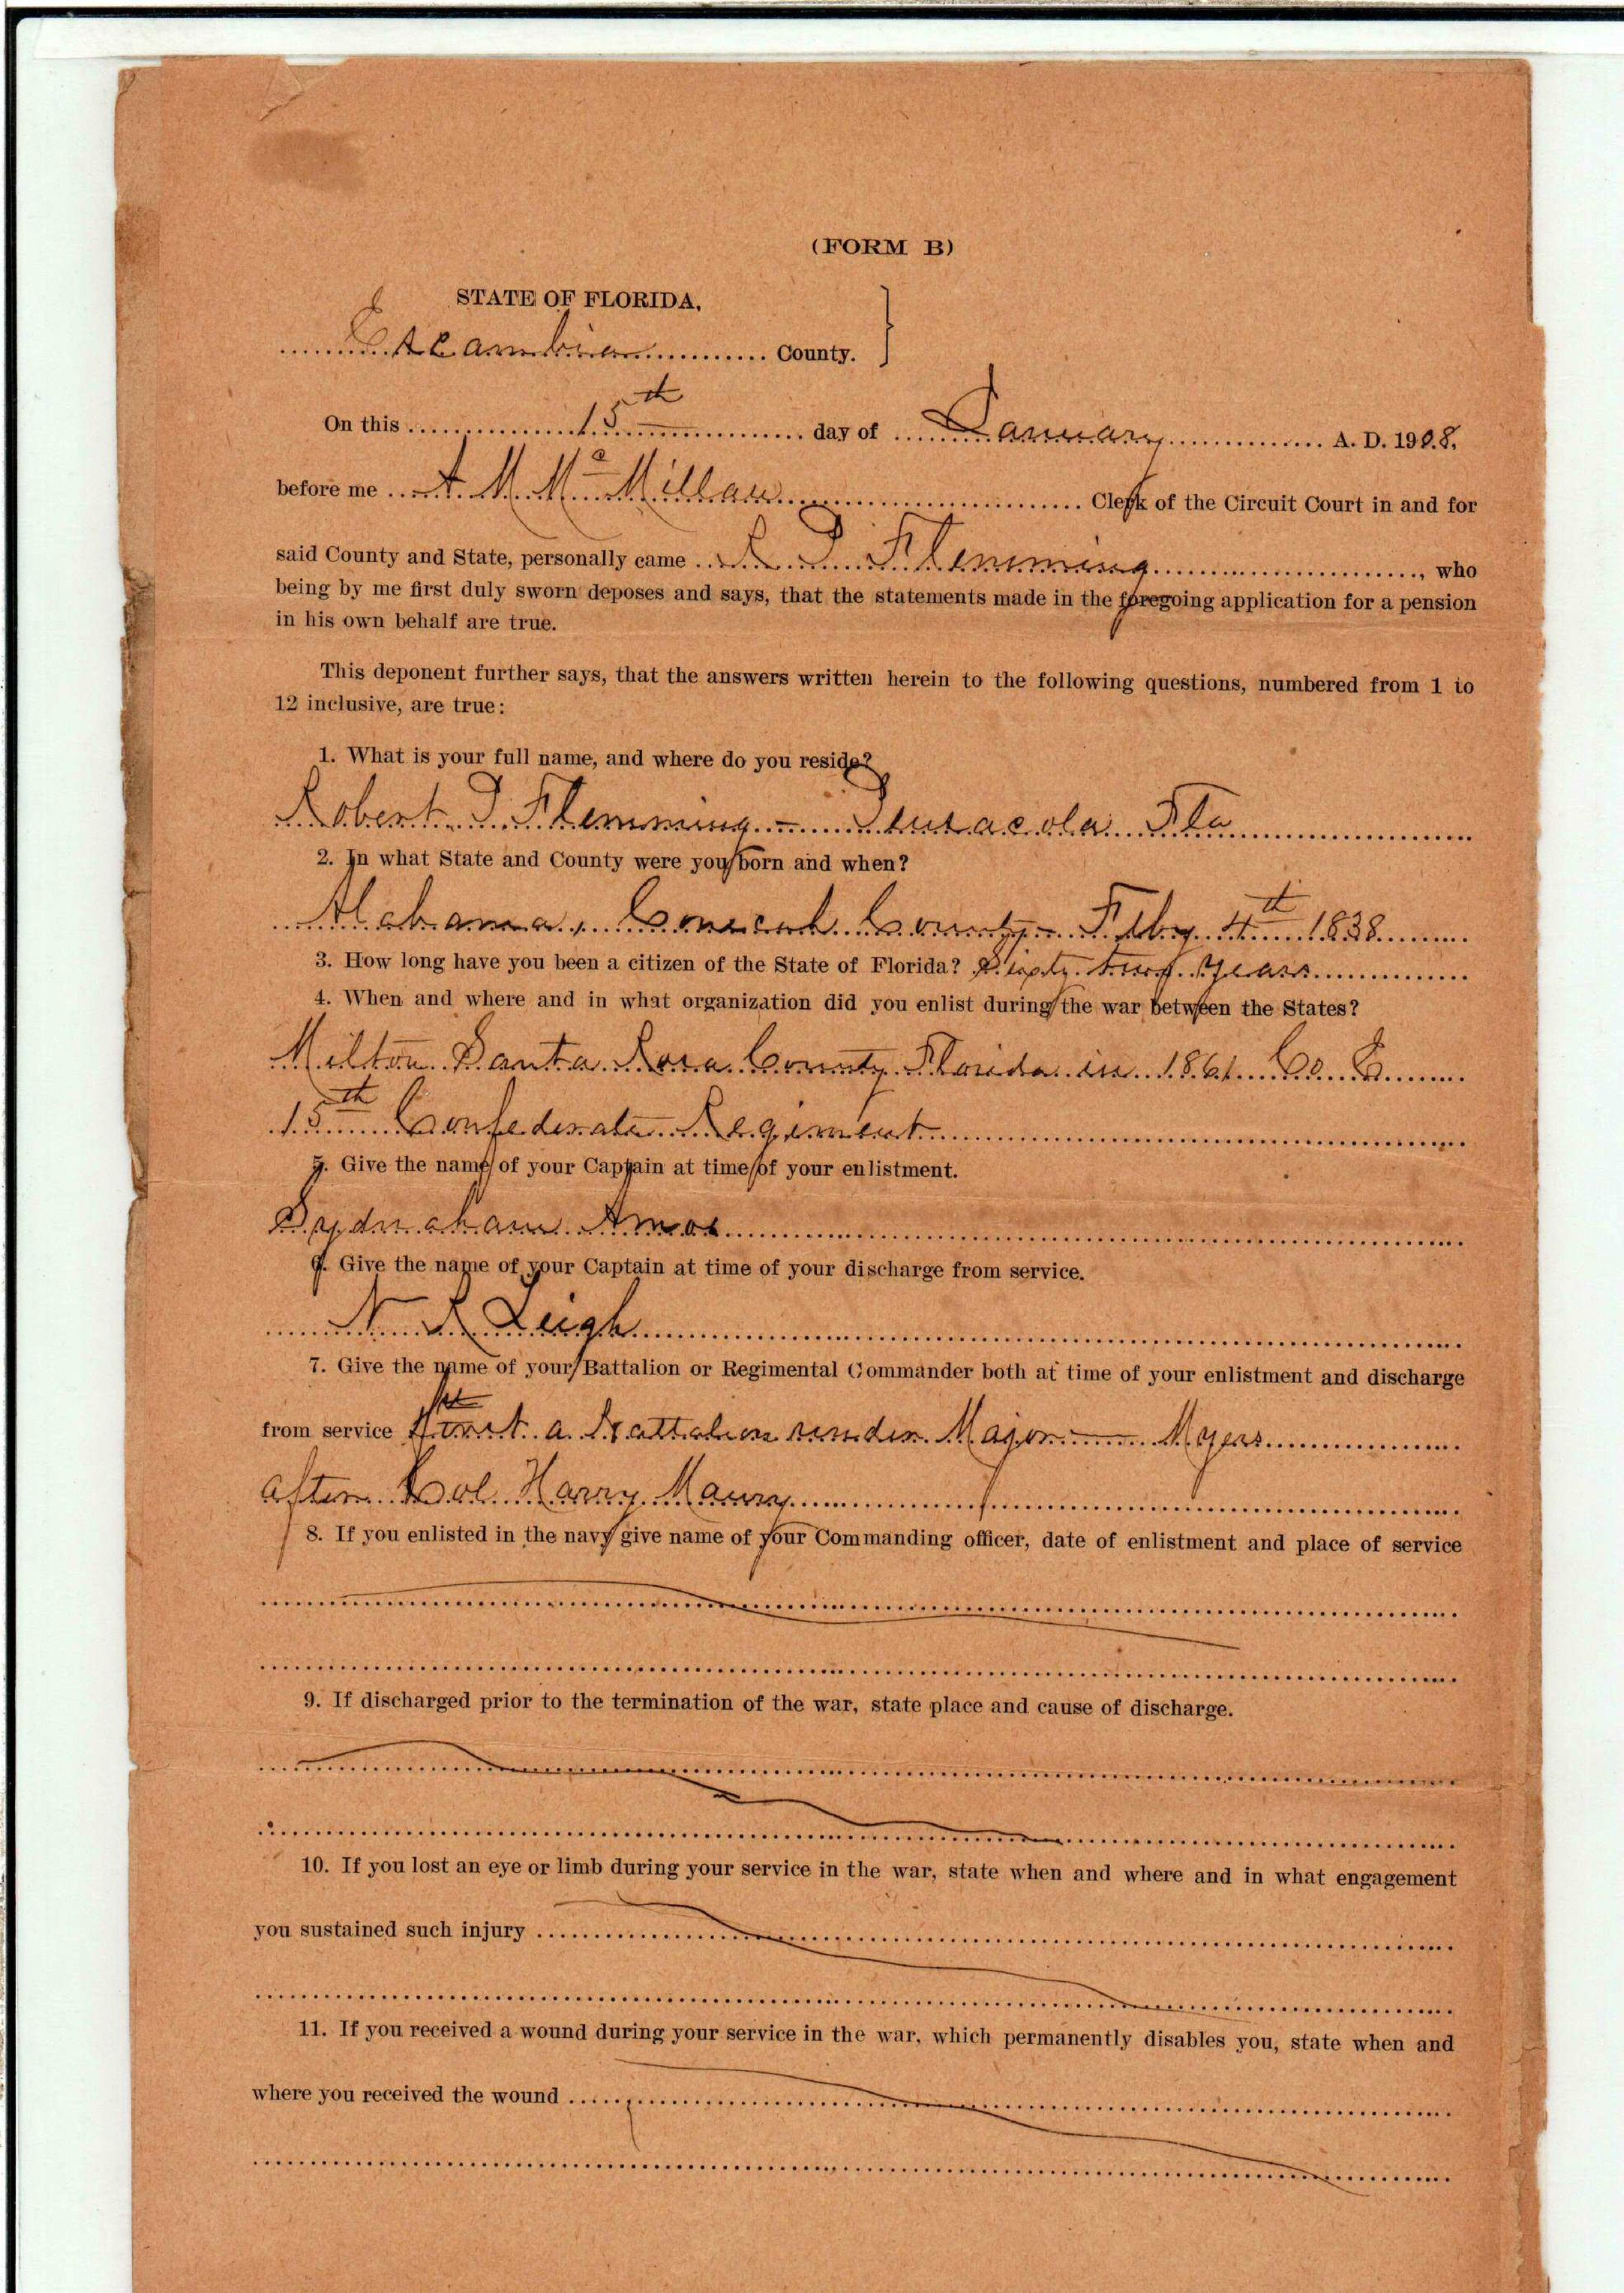 (FORM B)
STATE OF FLORIDA,
Escambia County.
On this 15th day of January A. D. 1908,
before me A. M. McMillan Clerk of the Circuit Court in and for
said County and State, personally came R. T. Flemming, who
being by me first duly sworn deposes and says, that the statements made in the foregoing application for a pension
in his own behalf are true.
This deponent further says, that the answers written herein to the following questions, numbered from 1 to
12 inclusive, are true:
1. What is your full name, and where do you reside?
Robert T. Flemming – Pensacola Fla
2. In what State and County were you born and when?
Alabama, Conecuh County – Feby 4th 1838
3. How long have you been a citizen of the State of Florida? Sixty two years
4. When and where and in what organization did you enlist during the war between the States?
Milton Santa Rosa County Florida in 1861 Co
15th Confederate Regiment
5. Give the name of your Captain at time of your enlistment.
Amos
6. Give the name of your Captain at time of your discharge from service.
N R Leigh
7. Give the name of your Battalion or Regimental Commander both at time of your enlistment and discharge
from service First a Battalion under Major — Myers
after Col Harry Maury
8. If you enlisted in the navy give name of your Commanding officer, date of enlistment and place of service
9. If discharged prior to the termination of the war, state place and cause of discharge.
10. If you lost an eye or limb during your service in the war, state when and where and in what engagement
you sustained such injury
11. If you received a wound during your service in the war, which permanently disables you, state when and
where you received the wound